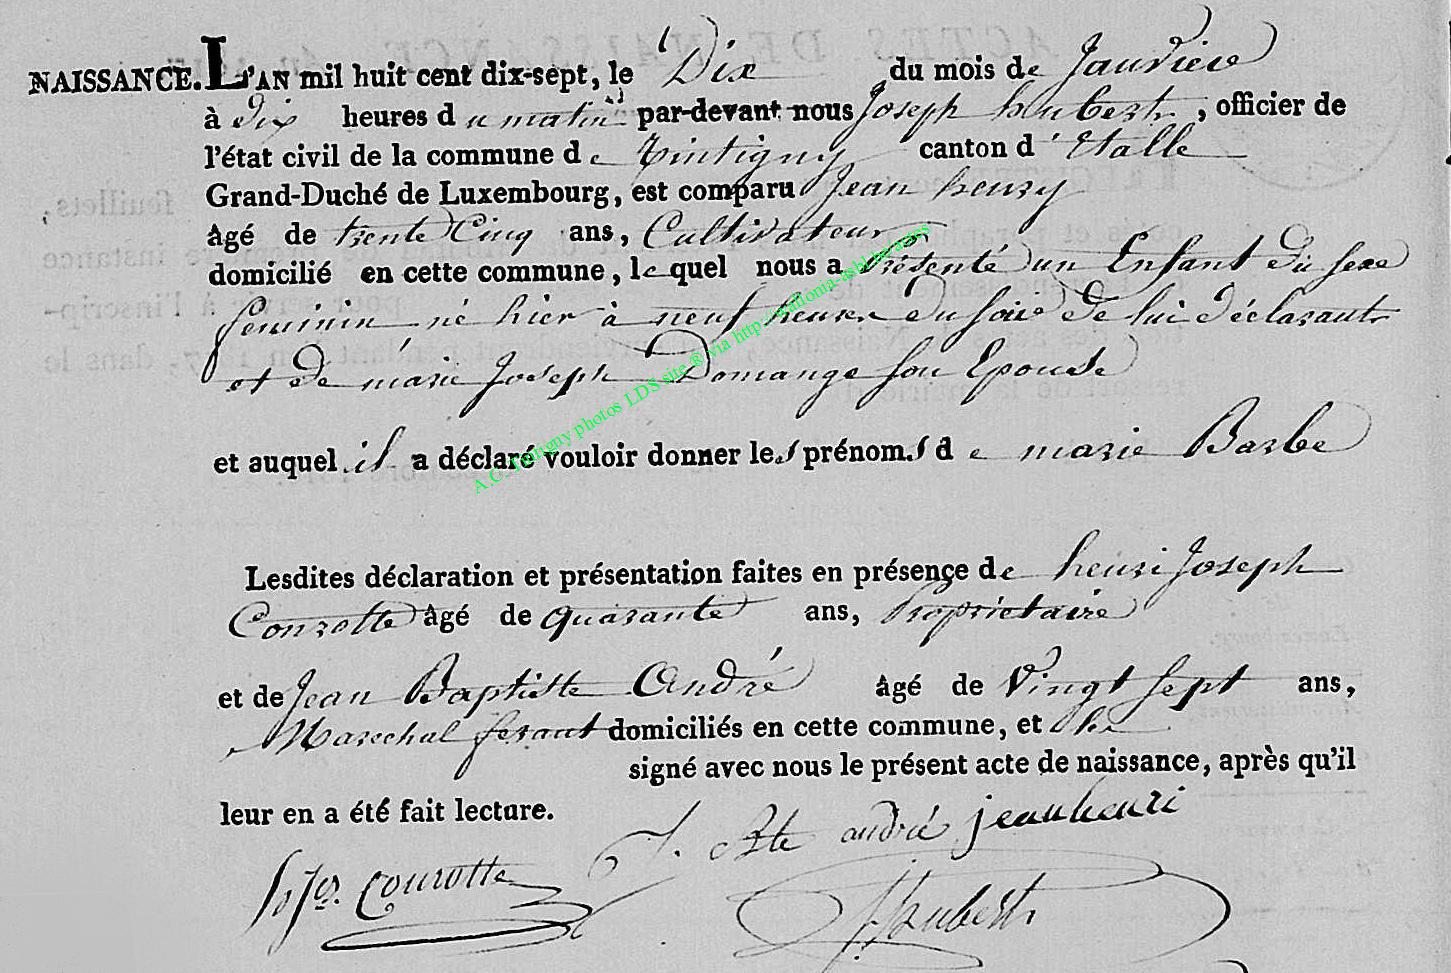 NAISSANCE. L'AN mil huit cent dix-sept, le Dix du mois de Janvier
à dix heures du matin par-devant nous Joseph hubert, officier de
l'état civil de la commune de Tintigny canton d'Etalle
Grand-Duché de Luxembourg, est comparu Jean henry
âgé de trente Cinq ans, Cultivateur
domicilié en cette commune, lequel nous a Présenté un Enfant du sexe
feminin né hier à neuf heures du soir de lui déclarant
et de marie Joseph Domange son Epouse
et auquel il a déclaré vouloir donner les prénoms de marie Barbe
Lesdites déclaration et présentation faites en présence de henri Joseph
Courotte âgé de quarante ans, Propriétaire
et de Jean Baptiste André âgé de Vingt sept ans,
Marechal ferant domiciliés en cette commune, et
signé avec nous le présent acte de naissance, après qu'il
leur en a été fait lecture.
J. Bte andré jeanhenri
h Jos. Courotte
J hubert
A.C. Tintigny photos LDS site ® via http://walloma-asbl.be/actes